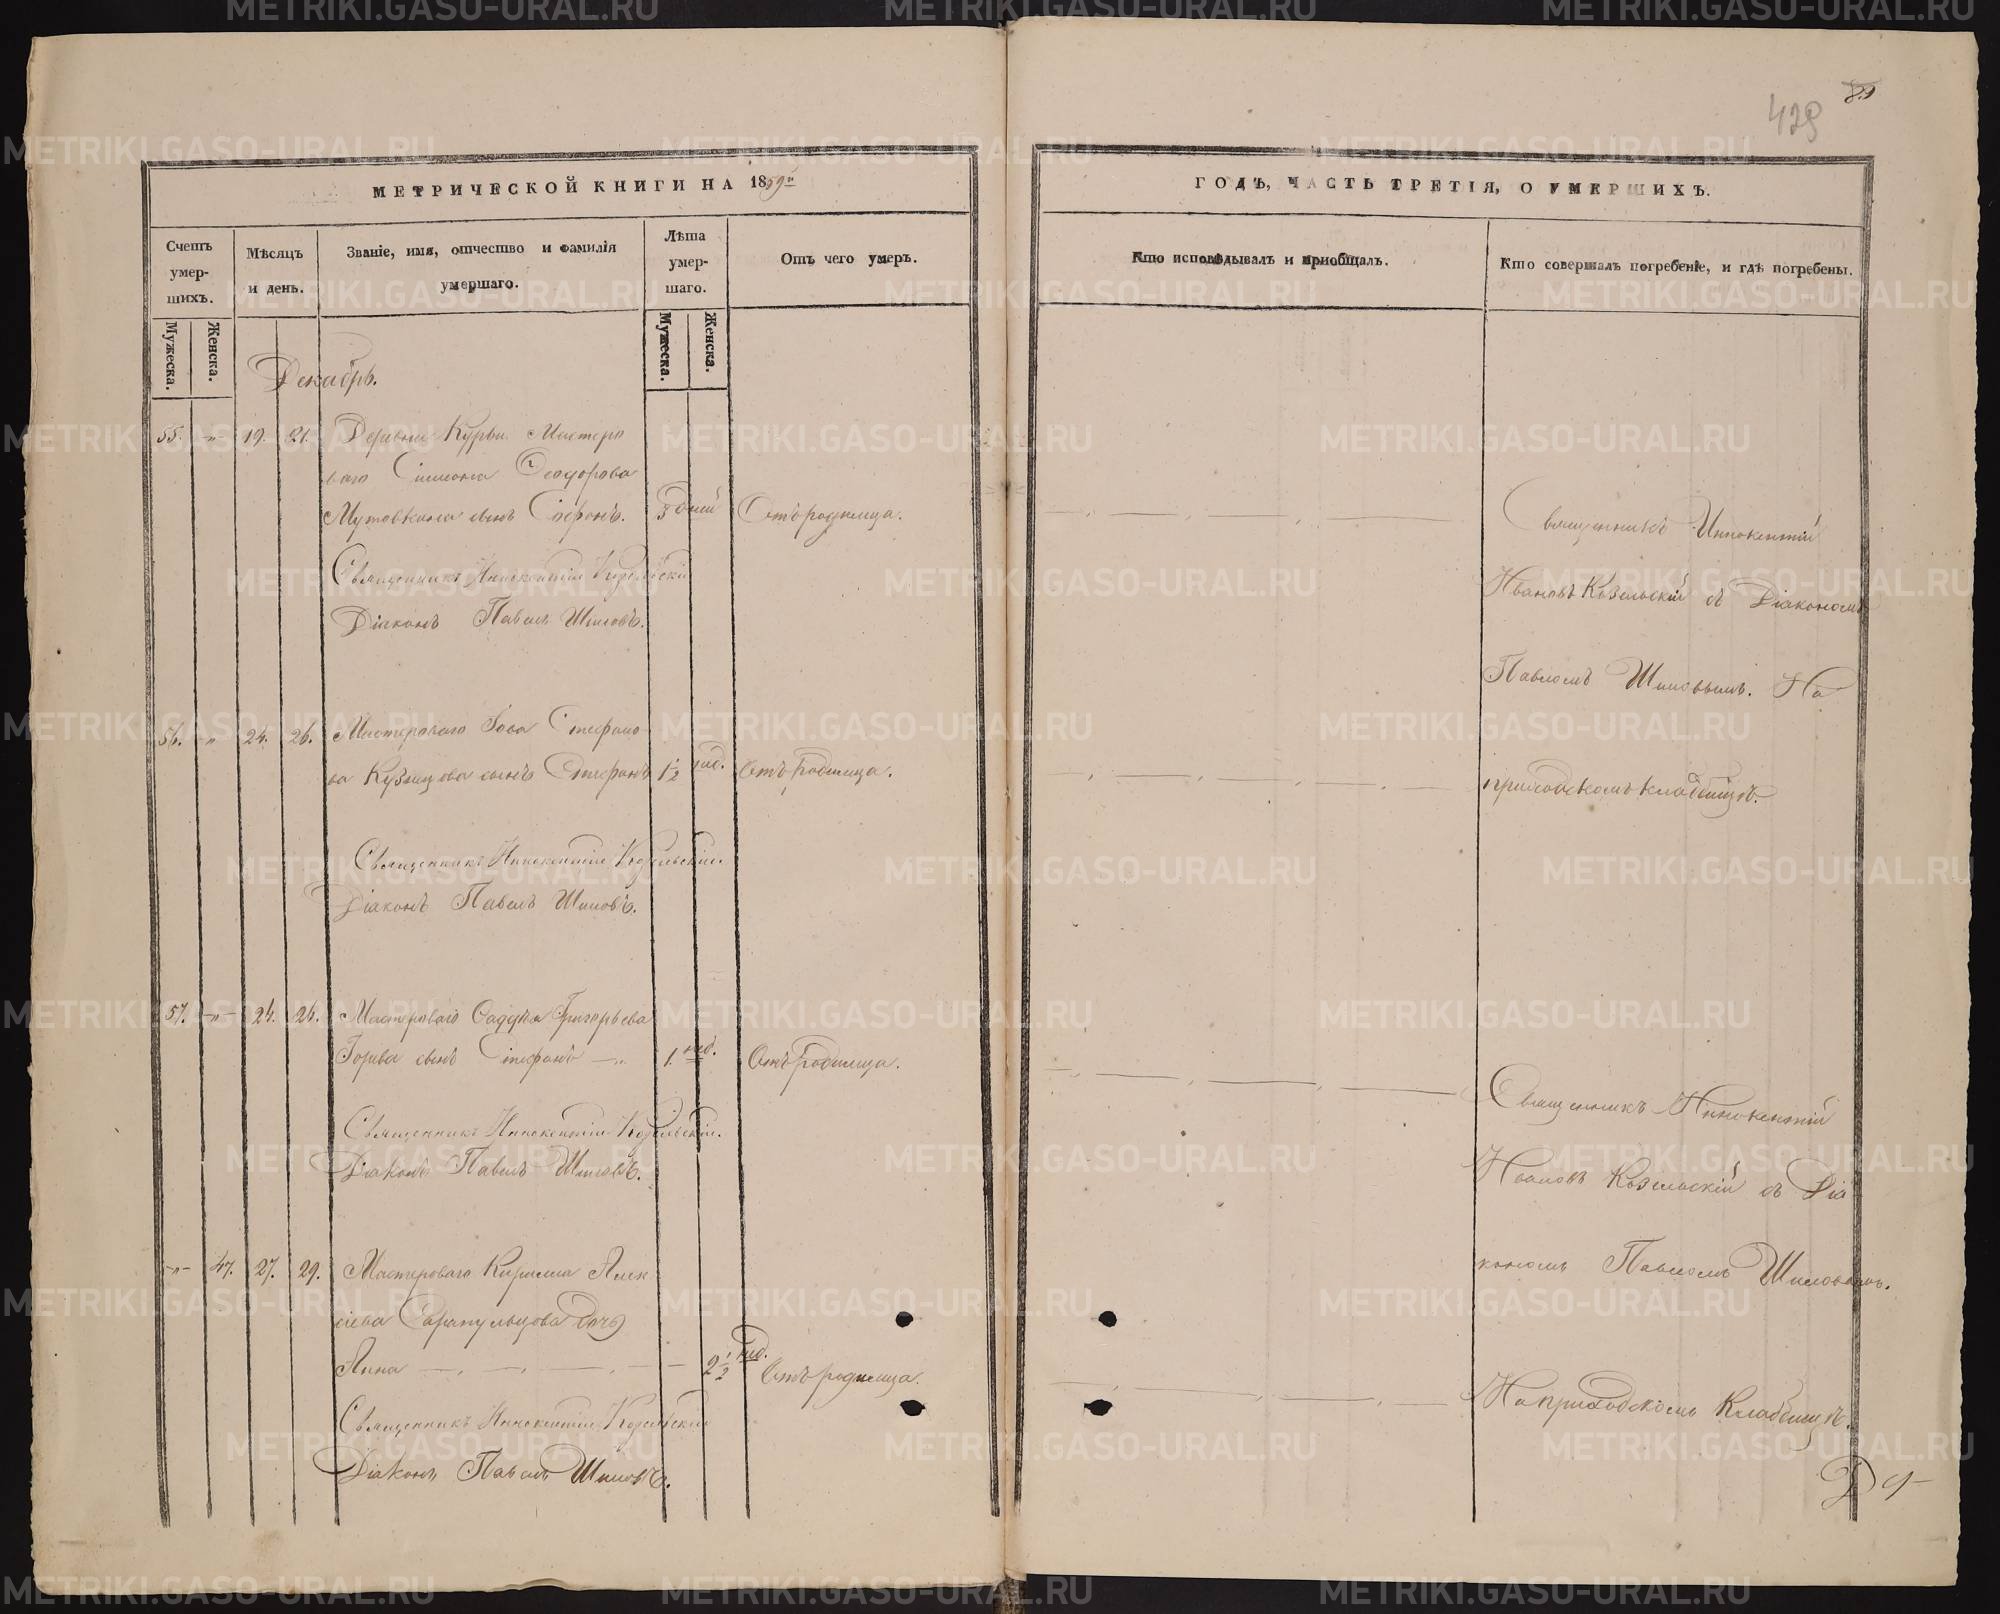 429
МЕТРИЧЕСКОЙ КНИГИ НА 1859й
ГОДЪ, ЧАСТЬ ТРЕТІЯ, О УМЕРШИХЪ.
Счетъ умер-шихъ.
Мѣсяцъ и день.
Званіе, имя, отчество и фамилія умершаго.
Лѣта умер-шаго.
Отъ чего умеръ.
Кто исповѣдывалъ и приобщалъ.
Кто совершалъ погребеніе, и гдѣ погребены.
Мужеска.
Женска.
Мужеска.
Женска.
Декабрь.
55. -"- 19. 21. Деревни Курьи Мастеро
ваго Симеона Ѳеодорова
Мутовкина сынъ Стефанъ. 3 дней Отъ родимца.
Священникъ Иннокентій Козельскій
Діаконъ Павелъ Шиловъ.
56. " 24. 26. Мастероваго Іова Стефано
ва Кузнецова сынъ Стефанъ 1 1/2 нед. Отъ родимца.
Священникъ Иннокентій Козельскій.
Діаконъ Павелъ Шиловъ.
57. -"- 24. 26. Мастероваго Саддока Григорьева
сынъ Стефанъ -"- 1. нед. Отъ родимца.
Священникъ Иннокентій Козельскій.
Діаконъ Павелъ Шиловъ.
-"- 47. 27. 29. Мастероваго Кирилла Алек
сіева Сарапульцова дочь
Анна 2 1/2 нед. Отъ родимца.
Священникъ Иннокентій Козельскій
Діаконъ Павелъ Шиловъ.
Священникъ Иннокентій
Ивановъ Козельскій съ Діакономъ
Павломъ Шиловымъ. На
приходскомъ кладбищѣ.
Священникъ Иннокентій
Ивановъ Козельскій съ Діа
кономъ Павломъ Шиловымъ.
На приходскомъ Кладбищѣ.
METRIKI.GASO-URAL.RU